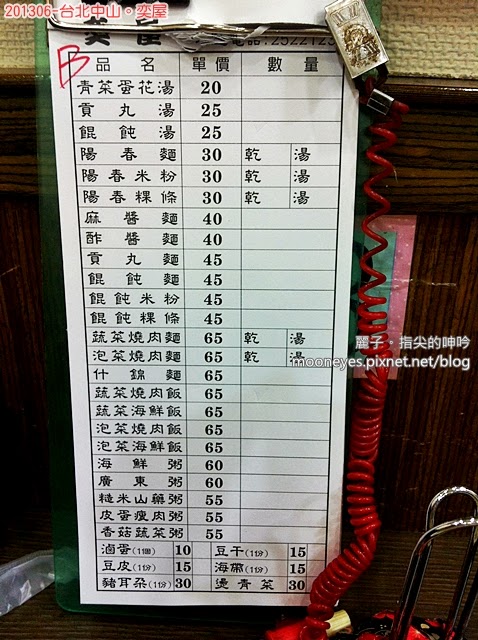 201306-台北中山・奕屋
B
品名 單價 數量
青菜蛋花湯 20
貢丸湯 25
餛飩湯 25
陽春麵 30 乾 湯
陽春米粉 30 乾 湯
陽春粿條 30 乾 湯
麻醬麵 40
酢醬麵 40
貢丸麵 45
餛飩麵 45
餛飩米粉 45
餛飩粿條 45
蔬菜燒肉麵 65 乾 湯
泡菜燒肉麵 65 乾 湯
什錦麵 65
蔬菜燒肉飯 65
蔬菜海鮮飯 65
泡菜燒肉飯 65
泡菜海鮮飯 65
海鮮粥 60
廣東粥 60
糙米山藥粥 55
皮蛋瘦肉粥 55
香菇蔬菜粥 55
滷蛋(1個) 10 豆干(1份) 15
豆皮(1份) 15 海帶(1份) 15
豬耳朵(1份) 30 燙青菜 30
麗子・指尖的呻吟
mooneyes.pixnet.net/blog